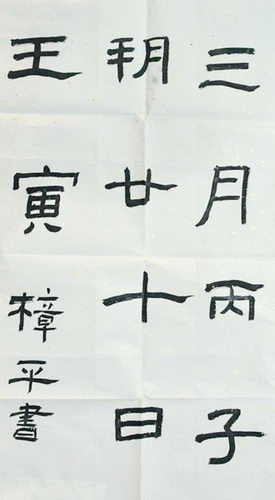 三月丙子
朔廿七日
壬寅 樟平書